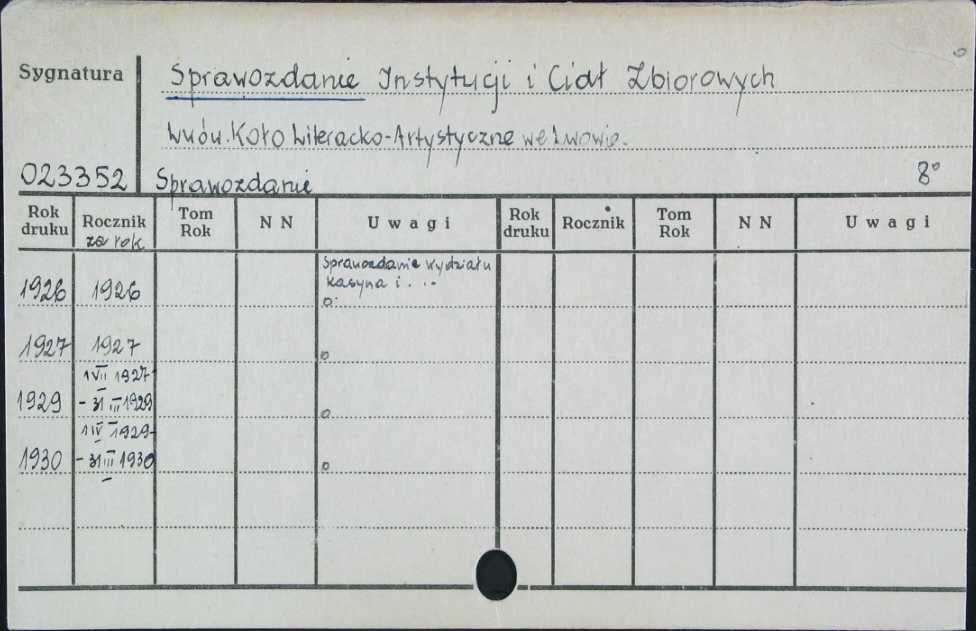 Sygnatura Sprawozdanie Instytucji i Ciał Zbiorowych
Lwów. Koło Literacko-Artystyczne we Lwowie.
023352 Sprawozdanie 8°
Rok druku Rocznik za rok Tom Rok N N Uwagi Rok druku Rocznik Tom Rok N N Uwagi
Sprawozdanie wydziału
kasyna i . . .
1926 1926
1927 1927
1 VII 1927-
1929 - 31 III 1929
1 IV 1929-
1930 - 31 III 1930